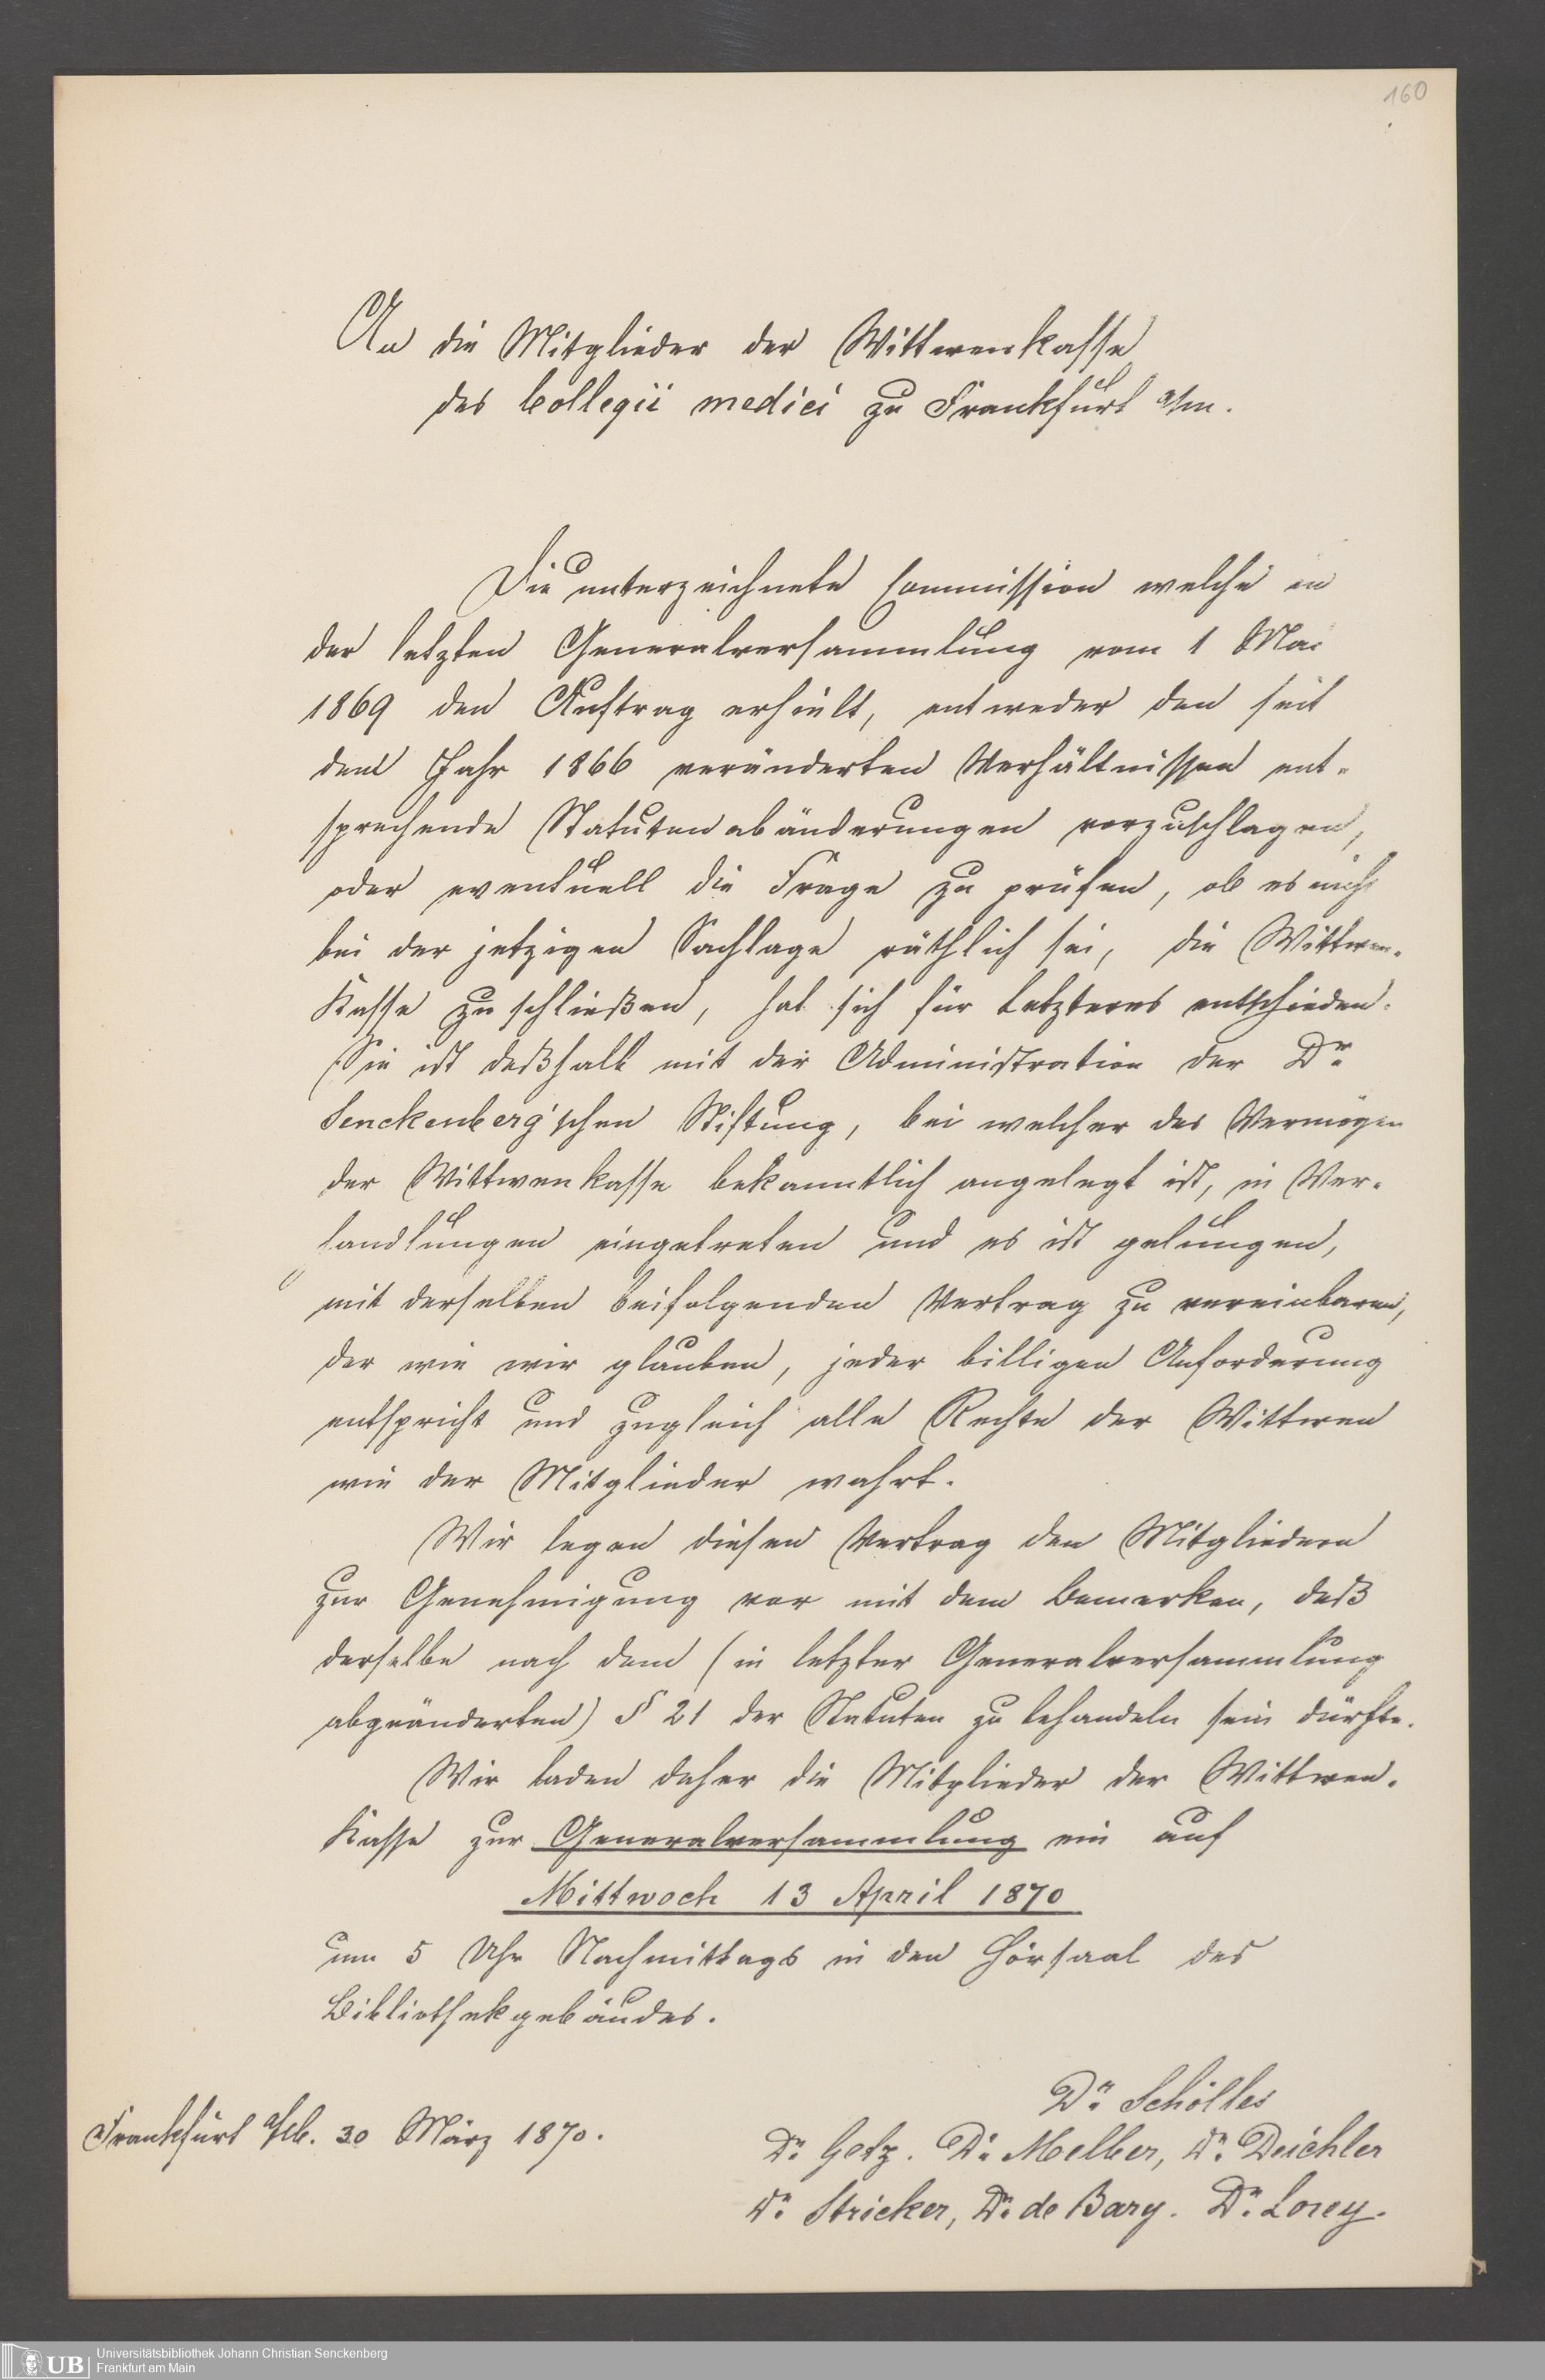 160
An die Mitglieder der Wittwenkasse
des Collegii medici zu Frankfurt a/m.
Die unterzeichnete Commission welche in
der letzten Generalversammlung vom 1 Mai
1869 den Auftrag erhielt, entweder den seit
dem Jahr 1866 veränderten Verhältnissen ent-
sprechende Statutenabänderungen vorzuschlagen,
oder eventuell die Frage zu prüfen, ob es nicht
bei der jetzigen Sachlage räthlich sei, die Wittwen-
Kasse zu schließen, hat sich für letzteres entschieden.
Sie ist deßhalb mit der Administration der Dr
Senckenberg'schen Stiftung, bei welcher das Vermögen
der Wittwenkasse bekanntlich angelegt ist, in Ver-
handlungen eingetreten und es ist gelungen,
mit derselben beifolgenden Vertrag zu vereinbaren,
der wie wir glauben, jeder billigen Anforderung
entspricht und zugleich alle Rechte der Wittwen
wie der Mitglieder wahrt.
Wir legen diesen Vertrag den Mitgliedern
zur Genehmigung vor mit dem Bemerken, daß
derselbe nach dem (in letzter Generalversammlung
abgeänderten) § 21 der Statuten zu behandeln sein dürfte.
Wir laden daher die Mitglieder der Wittwen-
Kasse zur Generalversammlung ein auf
Mittwoch 13 April 1870
um 5 Uhr Nachmittags in den Hörsaal des
Bibliothekgebäudes.
Frankfurt a/M. 30 März 1870.
Dr. Schölles
Dr. Getz. Dr. Melber, Dr. Deichler
Dr. Stricker, Dr. de Bary. Dr. Lorey.
UB
Universitätsbibliothek Johann Christian Senckenberg
Frankfurt am Main